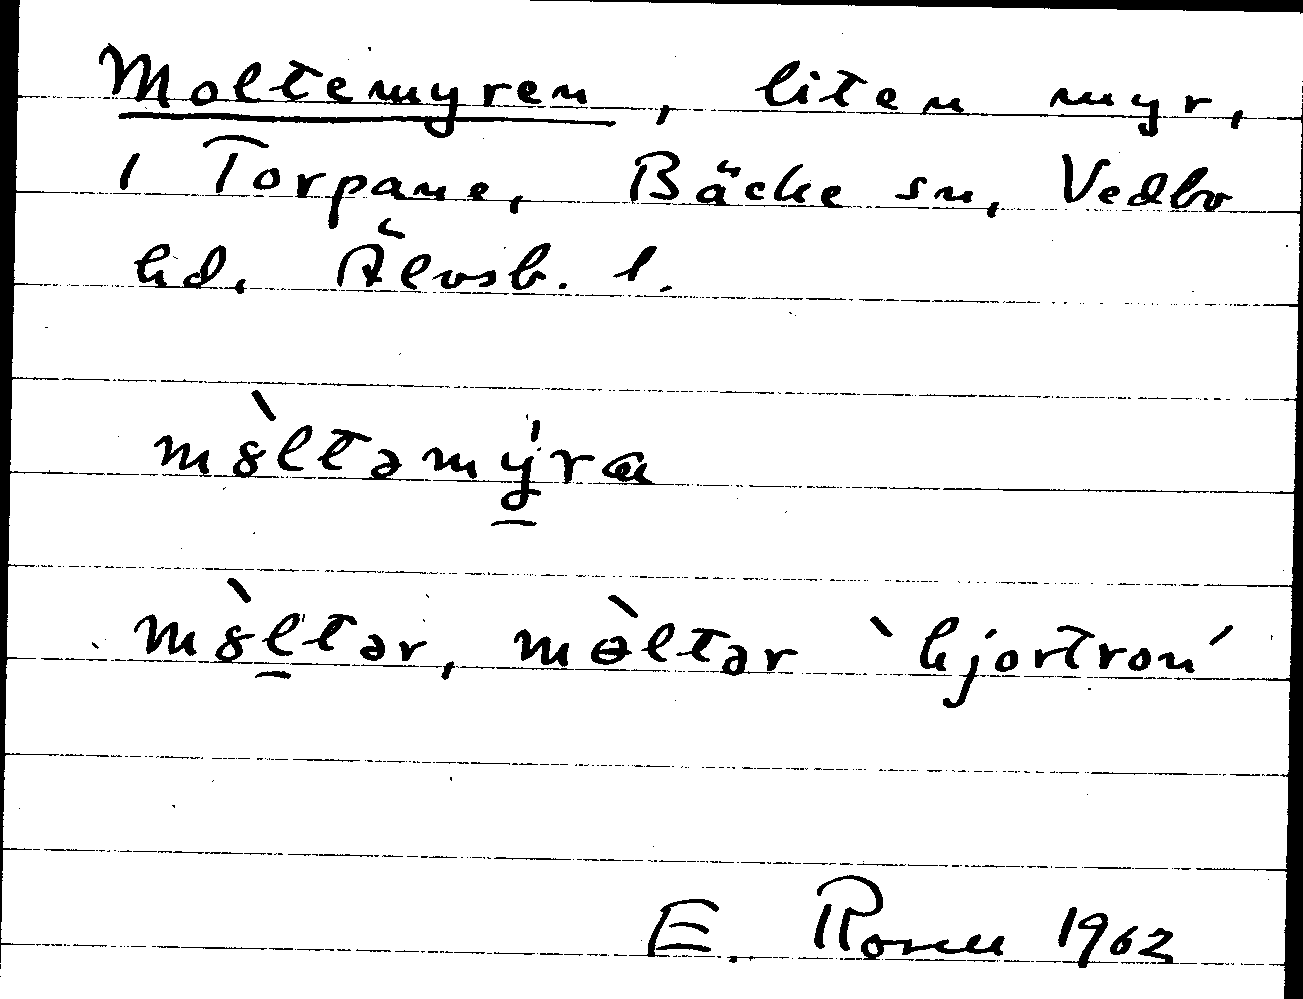 Moltemyren, liten myr,
i Torpane, Bäcke sn, Vedbo
hd. Älvsb. l.
mȣ̀ltəmýra
mȣ̀ltər, mɵ̀ltər `hjortron´
E. Rosell 1962